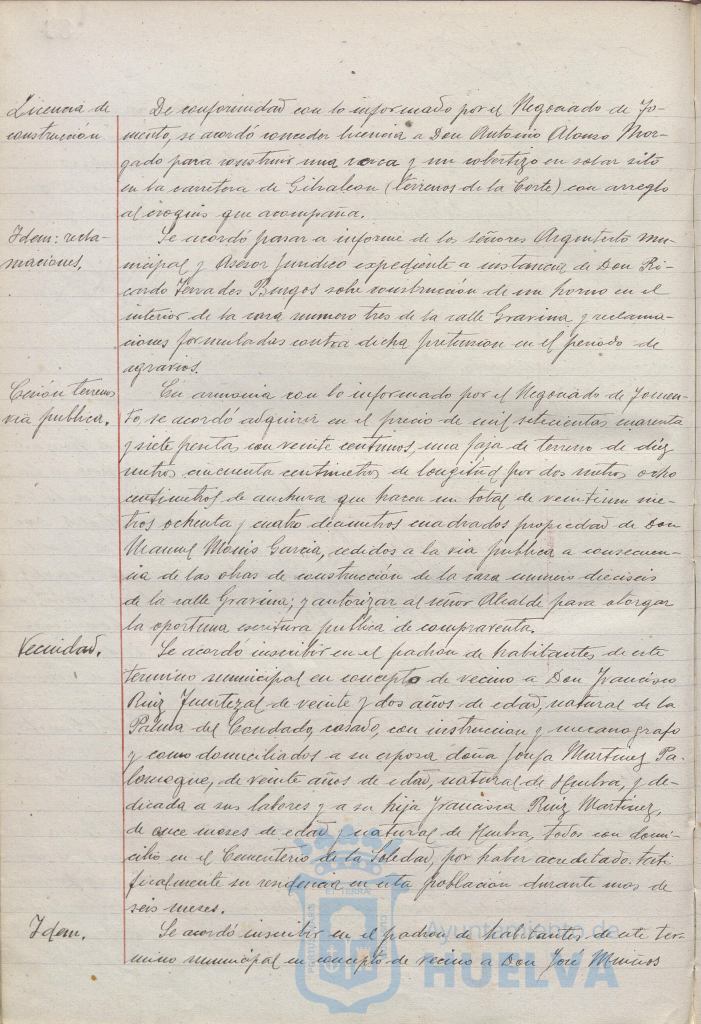 Licencia de
construcción
De conformidad con lo informado por el Negociado de Fo-
mento, se acordó conceder licencia a Don Antonio Alonso Mor-
gado para construir una cerca y un cobertizo en solar sito
en la carretera de Gibraleon (terrenos de la Corte) con arreglo
al croquis que acompaña.
Idem: recla-
maciones.
Se acordó pasar a informe de los señores Arquitecto mu-
nicipal y Asesor Juridico expediente a instancia de Don Ri-
cardo Terrades Burgos sobre construcción de un horno en el
interior de la casa numero tres de la calle Gravina y reclama-
ciones formuladas contra dicha pretension en el periodo de
agravios.
Cesión terrenos
via publica.
En armonia con lo informado por el Negociado de Fomen-
to, se acordó adquirir en el precio de mil setecientas cuarenta
y siete pesetas con veinte centimos, una faja de terreno de diez
metros cincuenta centimetros de longitud por dos metros ocho
centimetros de anchura que hacen un total de veintiun me-
tros ochenta y cuatro decimetros cuadrados propiedad de Don
Manuel Monis Garcia, cedidos a la via publica a consecuen-
cia de las obras de construcción de la casa numero dieciseis
de la calle Gravina; y autorizar al señor Alcalde para otorgar
la oportuna escritura publica de compraventa.
Vecindad.
Se acordó inscribir en el padron de habitantes de este
termino municipal en concepto de vecino a Don Francisco
Ruiz de veinte y dos años de edad, natural de la
Palma del Condado, casado, con instruccion y mecanografo
y como domiciliados a su esposa doña Josefa Martinez Pa-
lomeque, de veinte años de edad, natural de Huelva, y de-
dicada a sus labores y a su hija Francisca Ruiz Martinez,
de once meses de edad y natural de Huelva, todos con domi-
cilio en el Cementerio de la Soledad, por haber acreditado testi-
ficalmente su residencia en esta poblacion durante mas de
seis meses.
Idem.
Se acordó inscribir en el padron de habitantes de este ter-
mino municipal en concepto de vecino a Don José Muiños
Ayuntamiento de
HUELVA